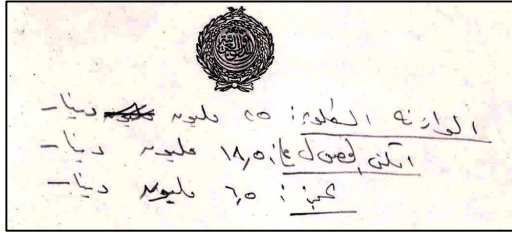 الموازنة المطلوبة: ٢٥ مليون دينار
امكن الحصول على: ١٨,٥ مليون دينار
عجز: ٦,٥ مليون دينار